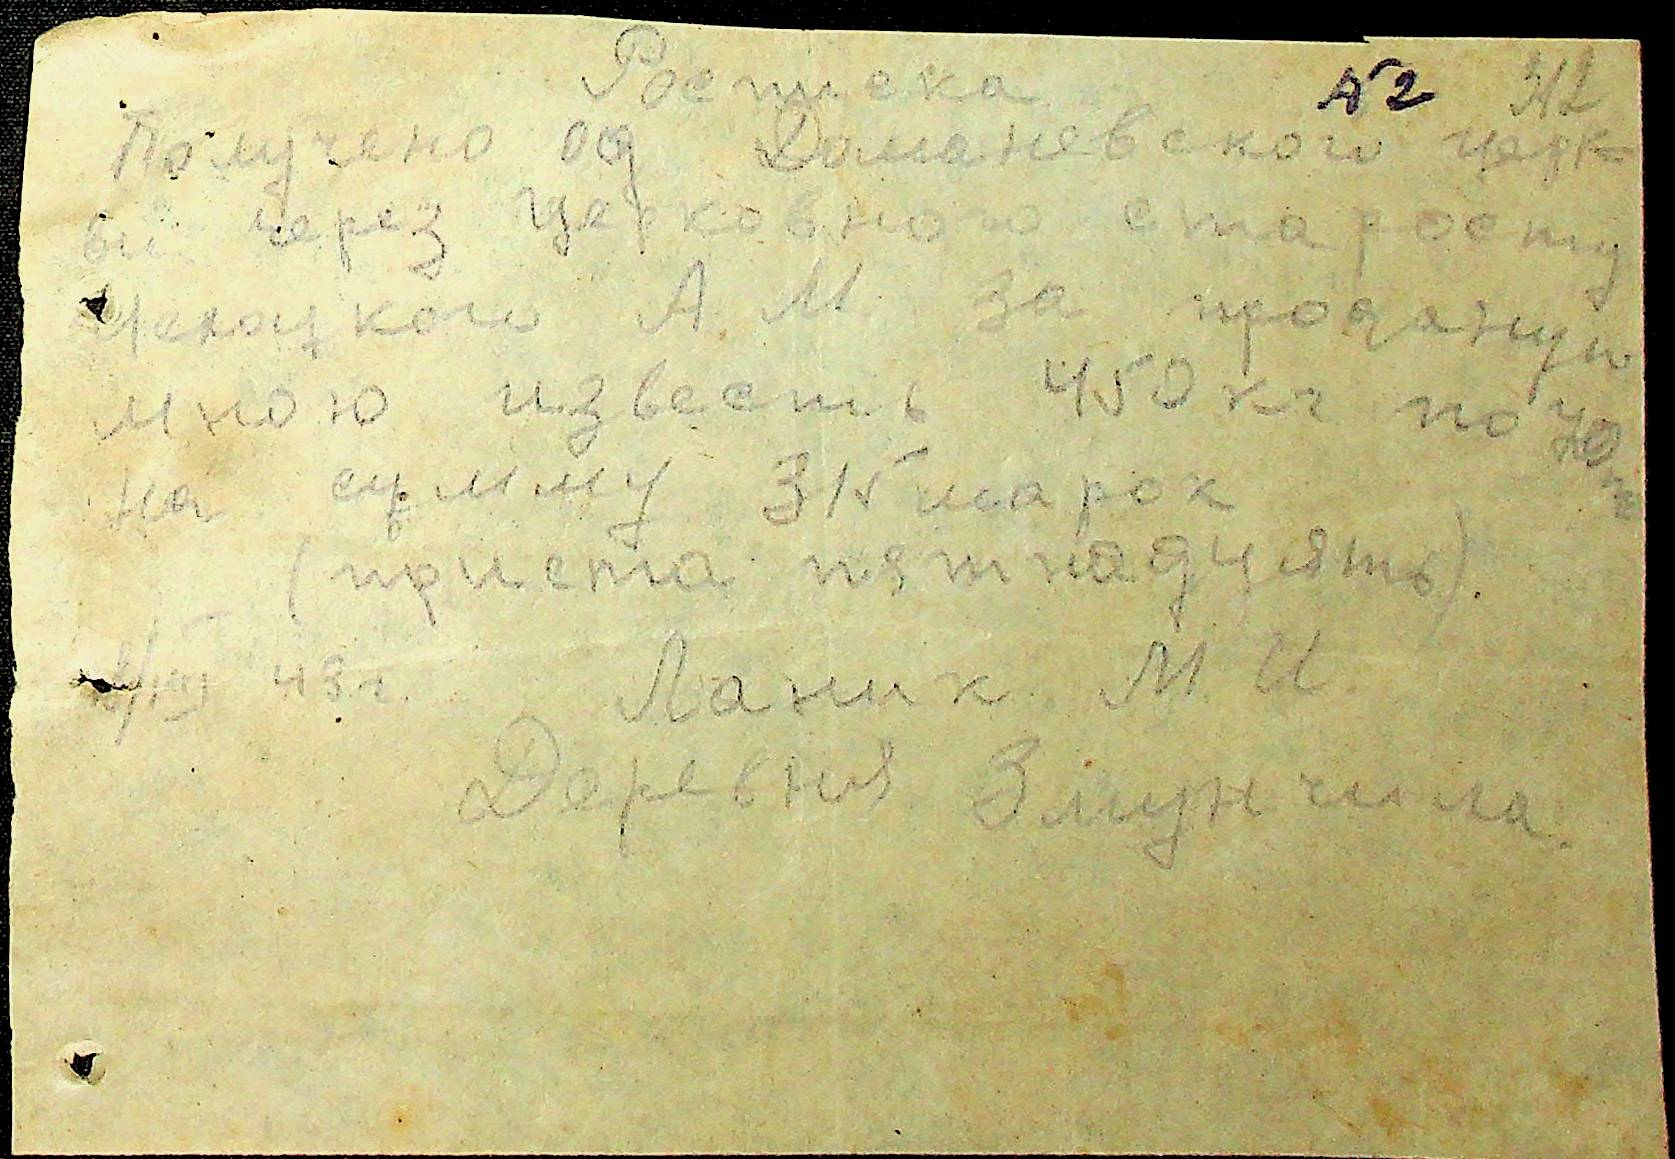 Росписка №2
Получено од Доманевского церк
ви через Церковного старосту
А. М. за проданую
мною известь 450 кг по 70
на сумму 315 марок
(триста пятнадцять).
43 г. Ланик М. И.
Деревня